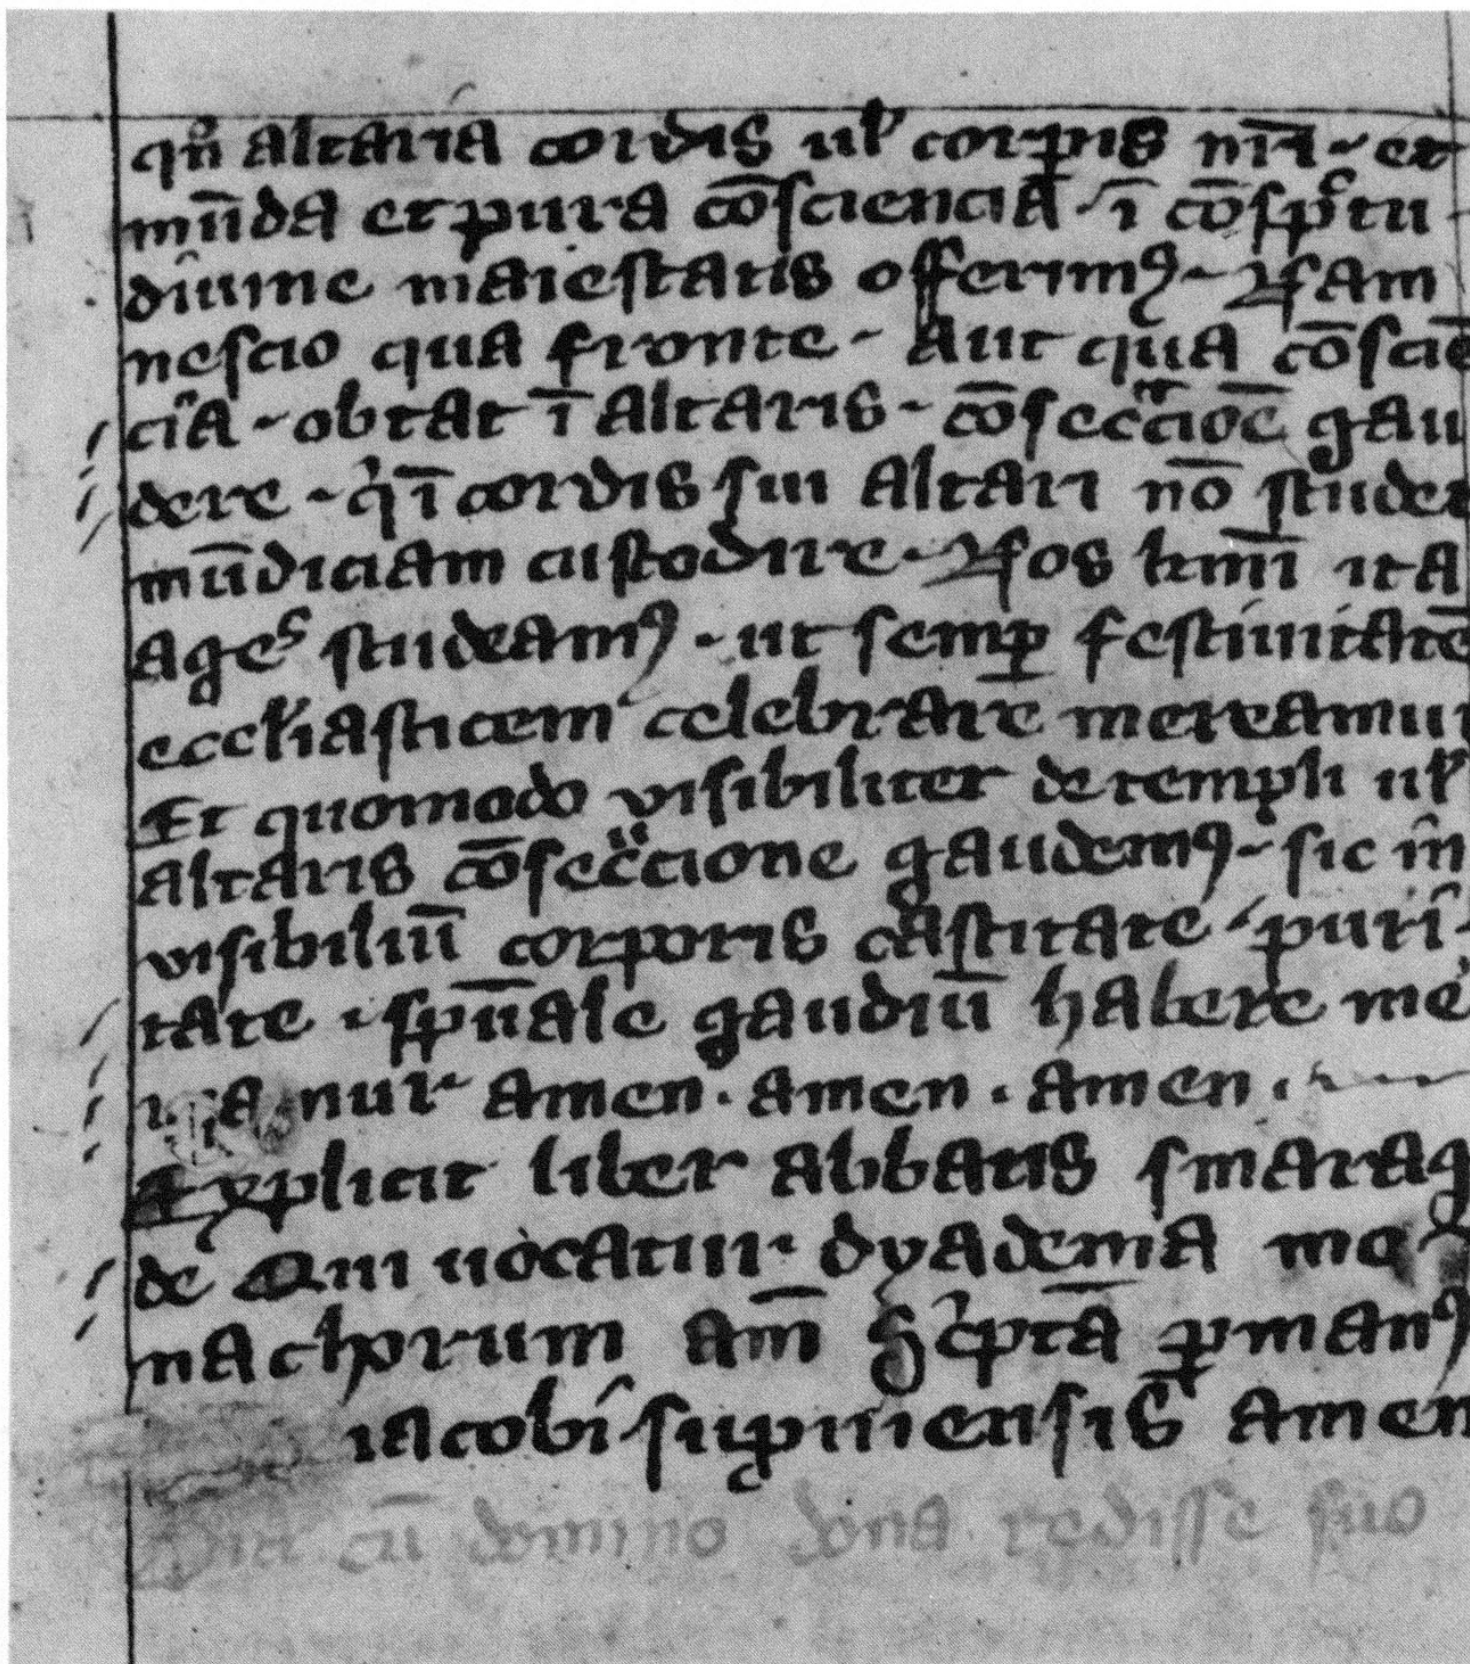 qn̄ altaria cordis ul̓ corꝑis nr̄i et
mūda et pura cōsciencia ī cōspctu
diuine maiestatis offerimꝰ Nam
nescio qua fronte Aut qua cōsciē
cia obtat ī altaris cōsecracioē gau
dere q̓ ī cordis sui altari nō studet
mūdiciam custodire Nos kr̄mi ita
ageˢ studeamꝰ ut semꝑ festiuitatē
eccl̓iasticem celebrare mereamur
Et quomodo visibiliter de templi ul̓
altaris cōsec̈cione gaudemꝰ sic in
visibiliū corporis castitate puri
tate spūale gaudiū habere me
a nur amen . amen . amen .
Explicit liber abbatis smarag
de Qui uocatur dyadema mo
nachorum am̄ sc̓pta ꝑ manꝰ
iacobi amen
cū domino dona redisse suo